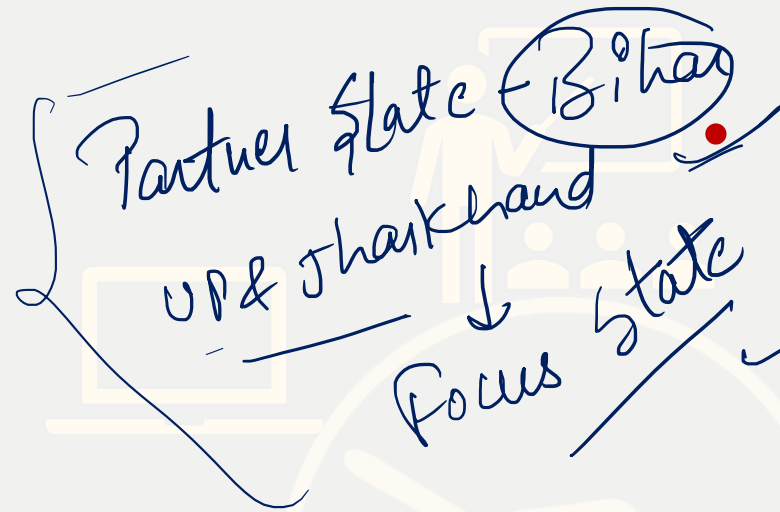 Partner State - Bihar
UP & Jharkhand
↓
Focus State